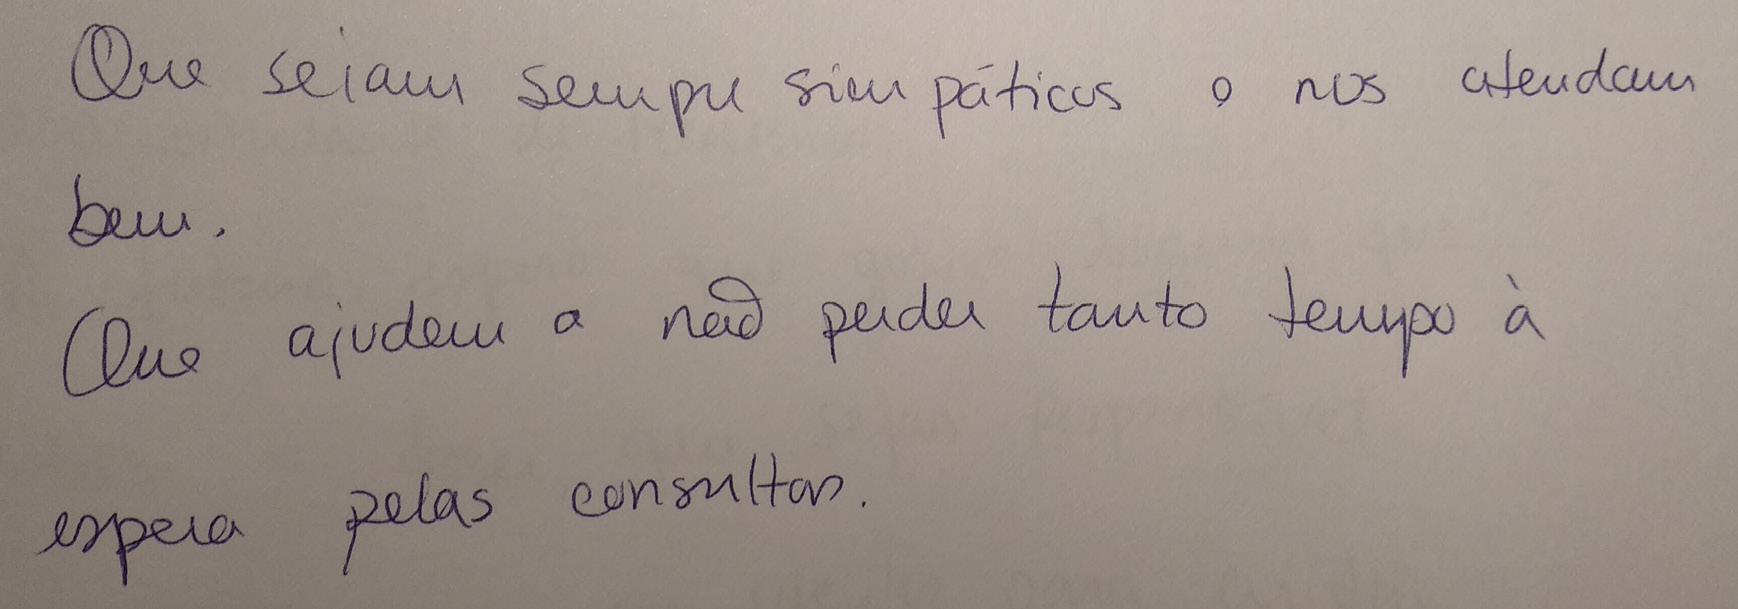 Que sejam sempre simpáticos e nos atendam
bem.
Que ajudem a não perder tanto tempo à
espera pelas consultas.